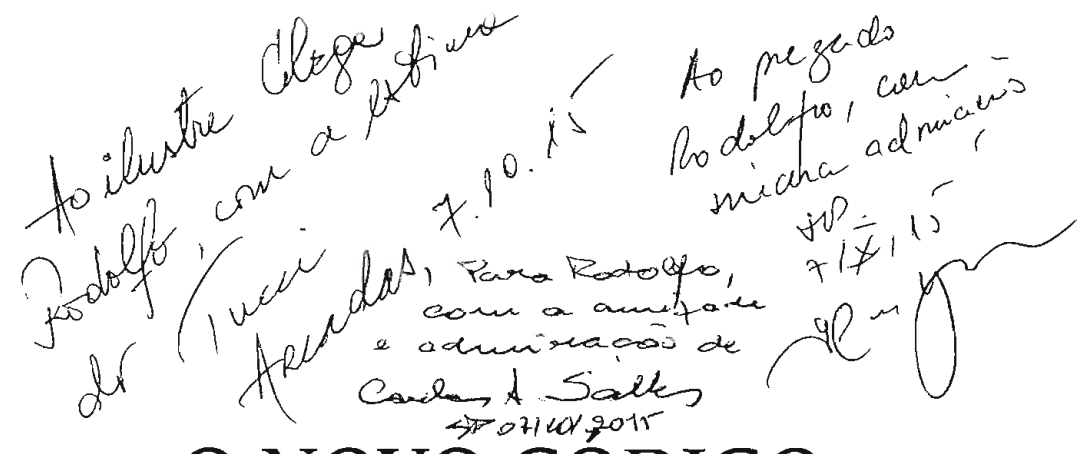 Ao ilustre Colega
Rodolfo, com a estima
do Tucci
Arcadas, 7.10.15
Ao prezado
Rodolfo, com
minha admiração
SP
7/X/15
Para Rodolfo,
com a amizade
e admiração de
Carlos A Salles
SP 07/10/2015
O NOVO CÓDIGO